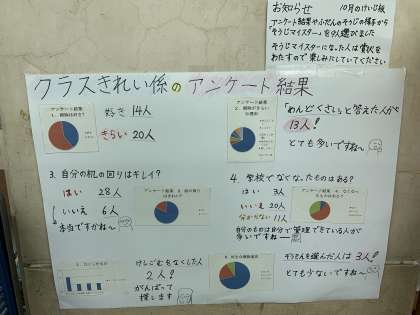 お知らせ
10月のけいじ板
アンケート結果やふだんのそうじの様子から
「そうじマイスター」を9人選びました
そうじマイスターになった人は賞状を
わたすので楽しみにしていてください
クラスきれい係のアンケート結果
アンケート結果
1. 掃除は好き?
好き 14人
きらい 20人
アンケート結果
「めんどくさい」と答えた人が
13人!
とても多いですね〜
3. 自分の机の回りはキレイ?
はい 28人
いいえ 6人
本当ですかね〜
アンケート結果
4. 学校でなくなったものはある?
はい 3人
いいえ 20人
分からない 11人
アンケート結果
自分のものは自分で管理できている人が
多いですね〜
けしごむをなくした人
2人!
がんばって
探します
ぞうきんを選んだ人は3人!
とても少ないですね〜